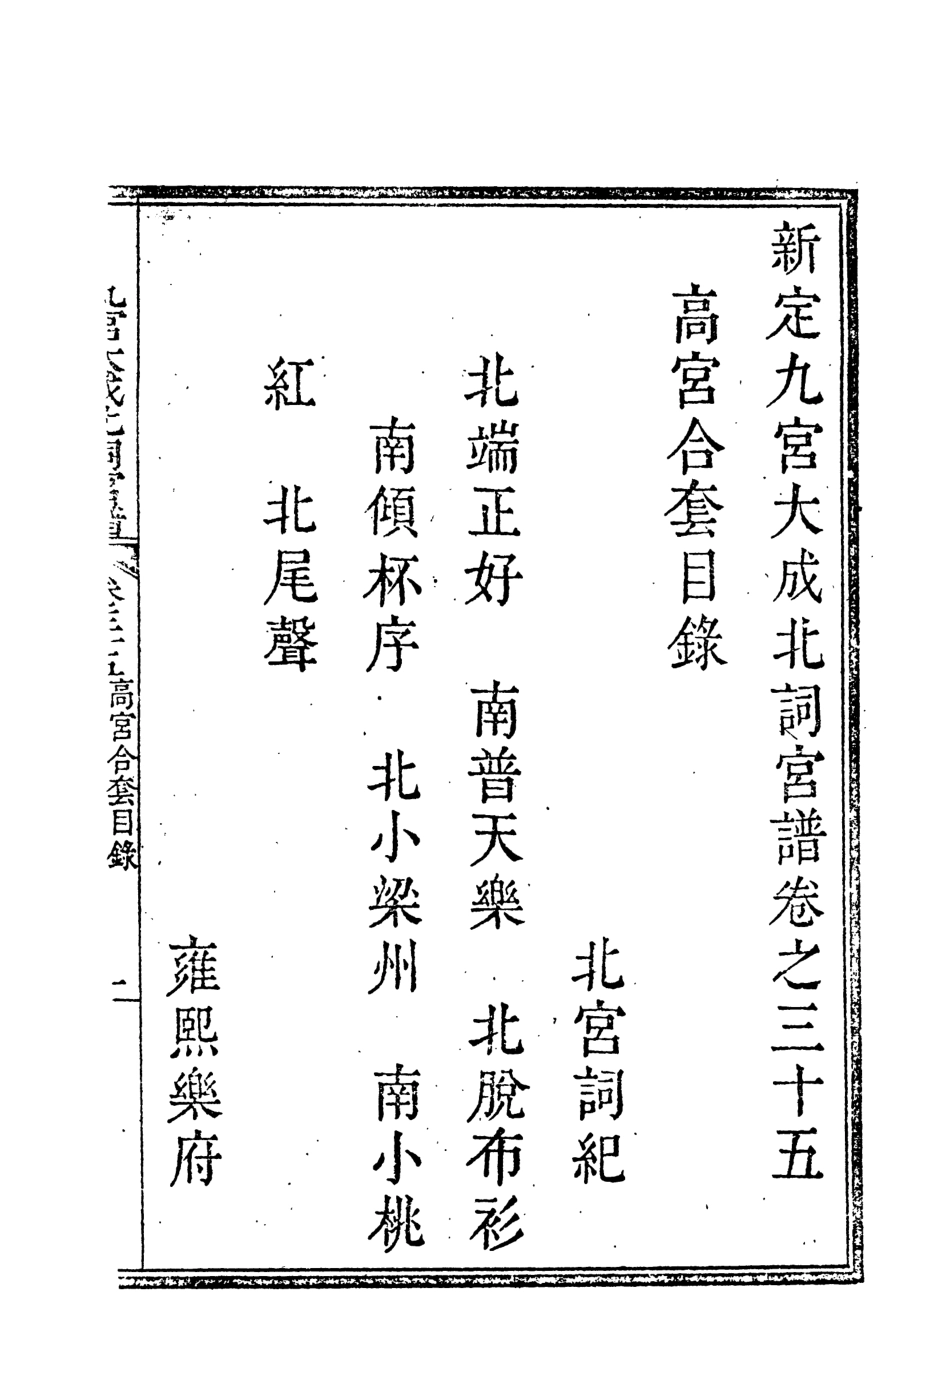 新定九宮大成北詞宮譜卷之三十五
高宮合套目錄
北宮詞紀
北端正好　南普天樂　北脫布衫
南傾杯序　北小梁州　南小桃
紅　北尾聲
雍熙樂府
高宮合套目錄　二